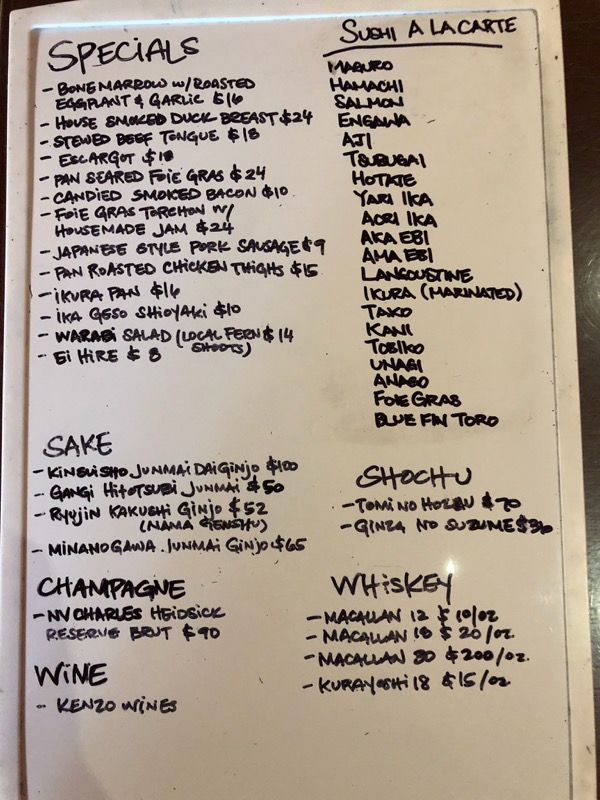 SPECIALS
- BONE MARROW W/ ROASTED
EGGPLANT & GARLIC $16
- HOUSE SMOKED DUCK BREAST $24
- STEWED BEEF TONGUE $18
- ESCARGOT $18
- PAN SEARED FOIE GRAS $24
- CANDIED SMOKED BACON $10
- FOIE GRAS TORCHON W/
HOUSEMADE JAM $24
- JAPANESE STYLE PORK SAUSAGE $9
- PAN ROASTED CHICKEN THIGHS $15
- IKURA PAN $16
- IKA GESO SHIOYAKI $10
- WARABI SALAD (LOCAL FERN $14
SHOOTS)
- EI HIRE $8
SUSHI A LA CARTE
MAGURO
HAMACHI
SALMON
ENGAWA
AJI
TSUBUGAI
HOTATE
YARI IKA
AORI IKA
AKA EBI
AMA EBI
LANGOUSTINE
IKURA (MARINATED)
TAKO
KANI
TOBIKO
UNAGI
ANAGO
FOIE GRAS
BLUE FIN TORO
SAKE
- JUNMAI DAIGINJO $100
- GANGI HITOTSUBI JUNMAI $50
- RYUJIN KAKUSHI GINJO $52
(NAMA GENSHU)
- MINANOGAWA JUNMAI GINJO $65
SHOCHU
- TOMI NO HOZAN $70
- GINZA NO SUZUME $36
CHAMPAGNE
- NV CHARLES HEIDSICK
RESERVE BRUT $90
WINE
- KENZO WINES
WHISKEY
- MACALLAN 12 $10/OZ
- MACALLAN 18 $20/OZ.
- MACALLAN 30 $200/OZ.
- KURAYOSHI 18 $15/OZ